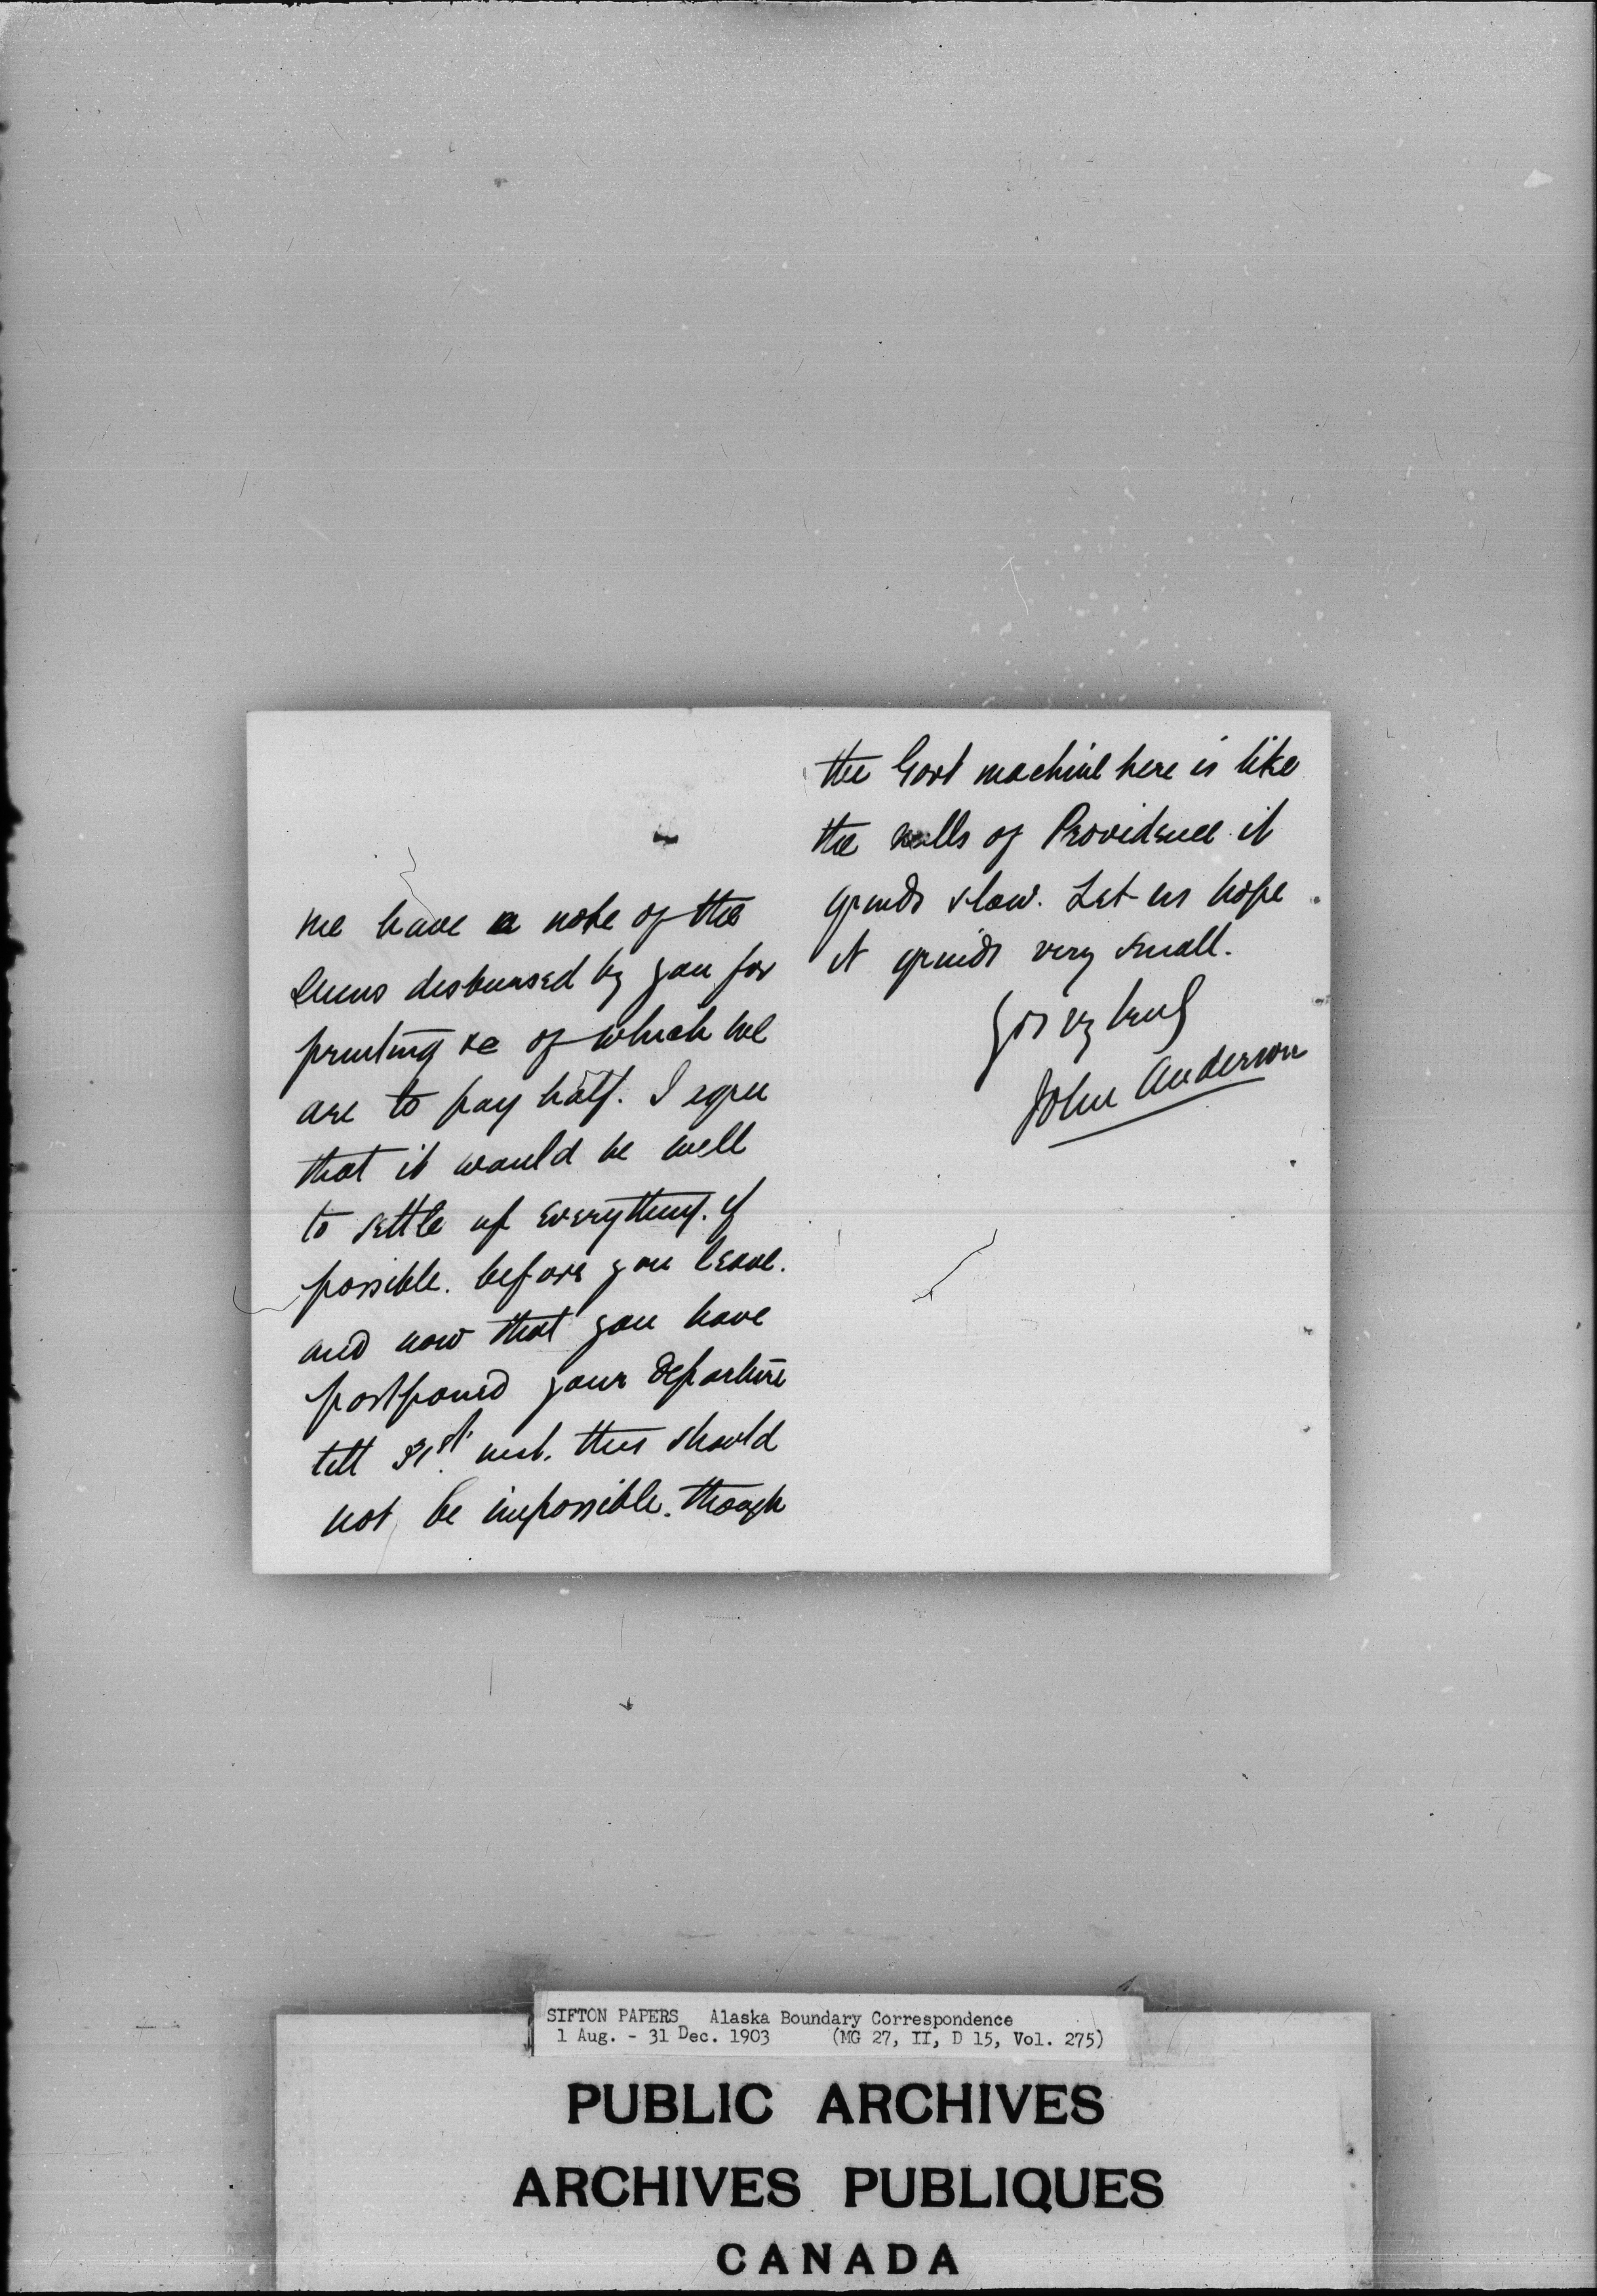 me have a note of the
sums disbursed by you for
printing &c of which we
are to pay half. I agree
that it would be well
to settle up everything. if
possible. before you leave.
and now that you have
postponed your departure
till 31st. inst. this should
not be impossible. though
the Govt machine here is like
the mills of Providence it
grinds slow. Let us hope
it grinds very small.
Yrs vy truly
John Anderson
SIFTON PAPERS Alaska Boundary Correspondence
1 Aug. - 31 Dec. 1903 (MG 27, II, D 15, Vol. 275)
PUBLIC ARCHIVES
ARCHIVES PUBLIQUES
CANADA